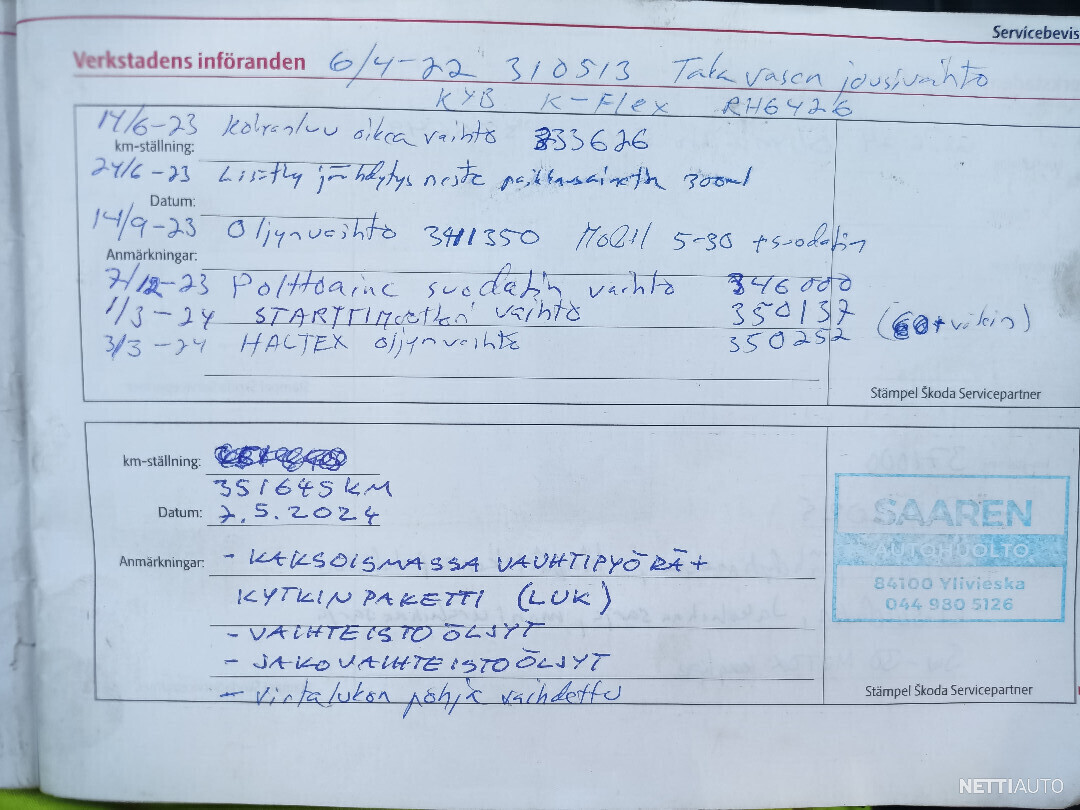 Servicebevis
Verkstadens införanden 6/4-22 310513 Taka vasen jousivaihto
KYB K-Flex RH6426
14/6-23 Koiranluu oikea vaihto 333626
km-ställning:
24/6-23 Lisätty jäähdytys neste paikkausainetta 300ml
Datum:
14/9-23 Öljynvaihto 341350 Mobil 5-30 + suodatin
Anmärkningar:
7/12-23 Polttoaine suodatin vaihto 346000
1/3-24 STARTTIMoottori vaihto 350137
3/3-24 HALTEX öljynvaihto 350252
Stämpel Škoda Servicepartner
km-ställning:
351645 KM
Datum: 7.5.2024
Anmärkningar: - KAKSOISMASSA VAUHTIPYÖRÄ +
KYTKINPAKETTI (LUK)
- VAIHTEISTOÖLJYT
- JAKOVAIHTEISTOÖLJYT
- virtalukon pohja vaihdettu
SAAREN
AUTOHUOLTO
84100 Ylivieska
044 980 5126
Stämpel Škoda Servicepartner
NETTIAUTO